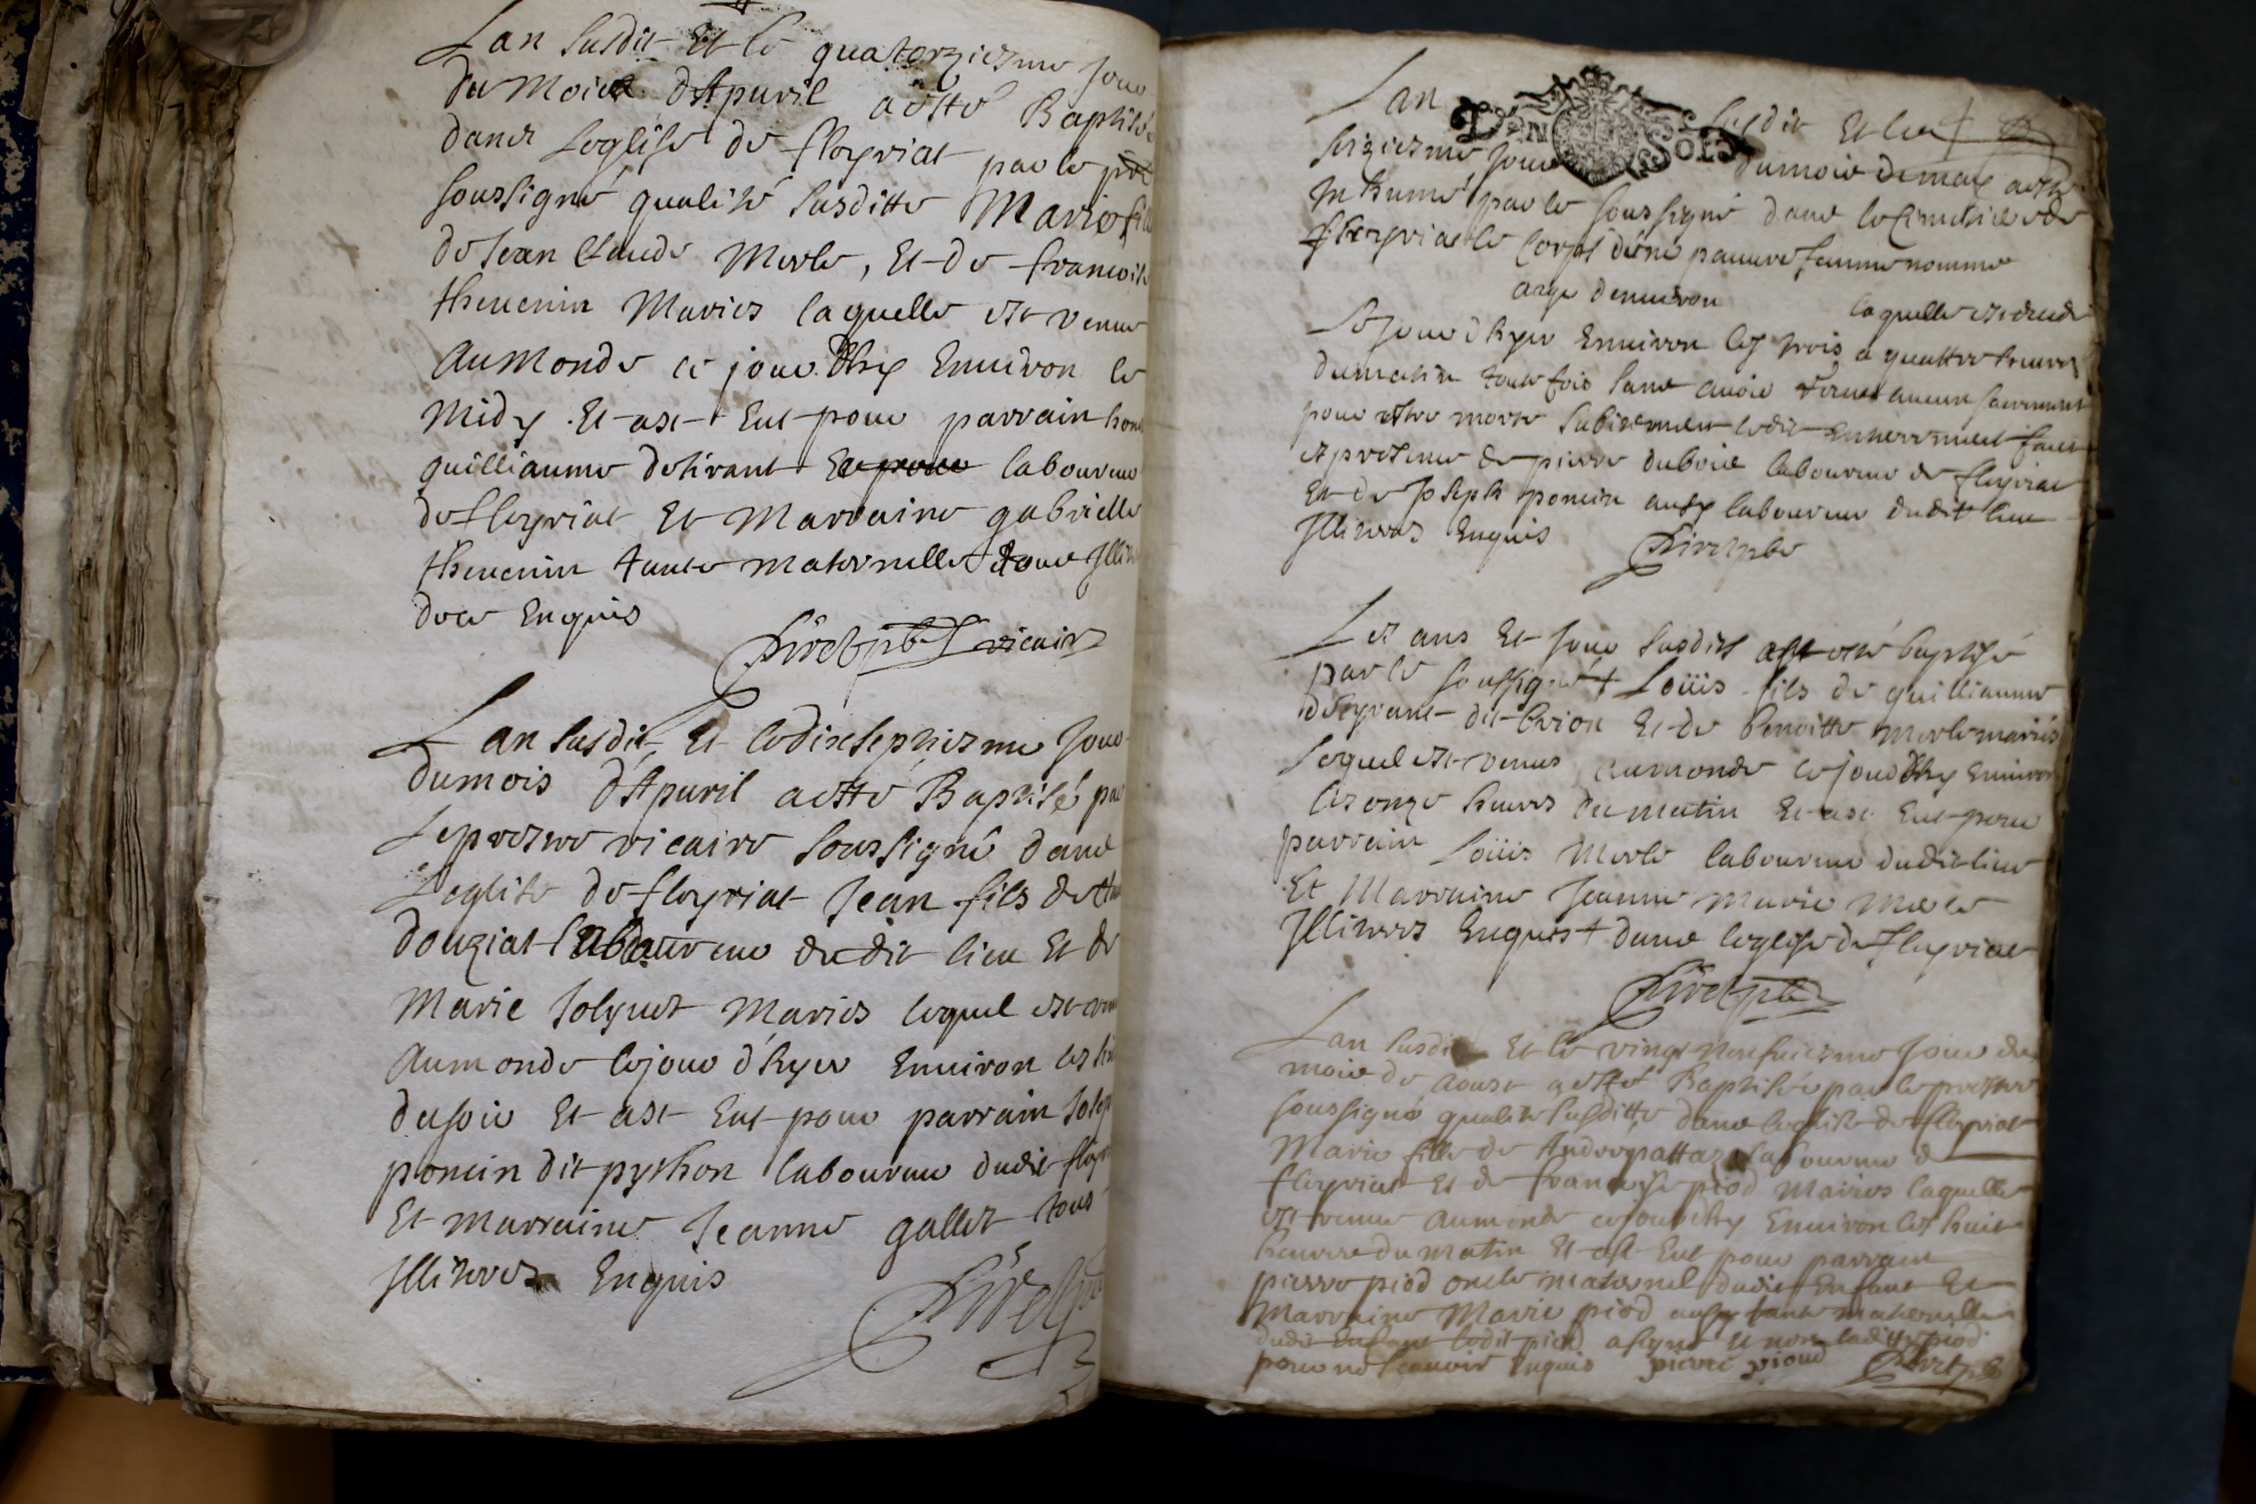 Lan susdit Et le quatorziesme jour
du Mois d'Apuril a esté Baptisée
dans leglise de fleyriat par le pbre
soussigné qualité susditte Marie fille
de Jean Claude Merle, Et de francoise
theuenin Mariés laquelle est venue
Au Monde ce jourdhuy Enuiron le
Midy Et a Eut pour parrain
guilliaume deliraut laboureur
de fleyriat Et Marraine gabrielle
theuenin tante maternelle
Enquis
pbre vicaire
Lan susdit Et le dixseptiesme jour
du mois d'Apuril a esté Baptisé par
le prestre vicaire soussigné dans
l'eglise de fleyriat Jean fils de
douziat labaureur dudit lieu Et de
Marie Mariés lequel est venu
Au monde le jour d'hyer Enuiron les
du soir Et a Eut pour parrain
poncin dit python laboureur dudit
Et marraine Jeanne gallet tous
Illiteres Enquis
Lan susdit Et le
DEN SOLS
seiziesme jour du mois de may a esté
Inhumé par le soussigné dans le Cimetiere de
fleyriat le Corps d'une pauure femme nommee
aage denuiron laquelle est decedée
le jour d'hyer Enuiron les trois a quattre heures
du matin toute fois sans auoir receu aucun sacrement
pour estre morte subitement ledit enterrement fait
en presence de pierre dubois laboureur de fleyriat
Et de Joseph poncin aussy laboureur dudit lieu
Illiteres Enquis
pbre
Les ans Et jour susdits a esté baptisé
par le soussigné + Loüis fils de guilliaume
dit brion Et de benoitte Merle mariés
lequel est venu au monde ce jourdhuy Enuiron
les onze heures du matin Et a Eut pour
parrain Loüis Merle laboureur dudit lieu
Et Marraine Jeanne Marie Merle
Illiteres Enquis + dans leglise de fleyriat
pbre
Lan susdit Et le vingt jour du
mois de Aoust a esté Baptisée par le prestre
soussigné qualité susditte dans leglise de fleyriat
Marie fille de laboureur de
fleyriat Et de francoise piod Mariés laquelle
est venue au monde ce jourdhuy Enuiron les huit
heures du matin Et a Eut pour parrain
pierre piod oncle maternel dudit Enfant Et
Marraine Marie piod aussy tante maternelle
dudit Enfant ledit piod a signé Et non laditte piod
pour ne scauoir Enquis pierre pioud